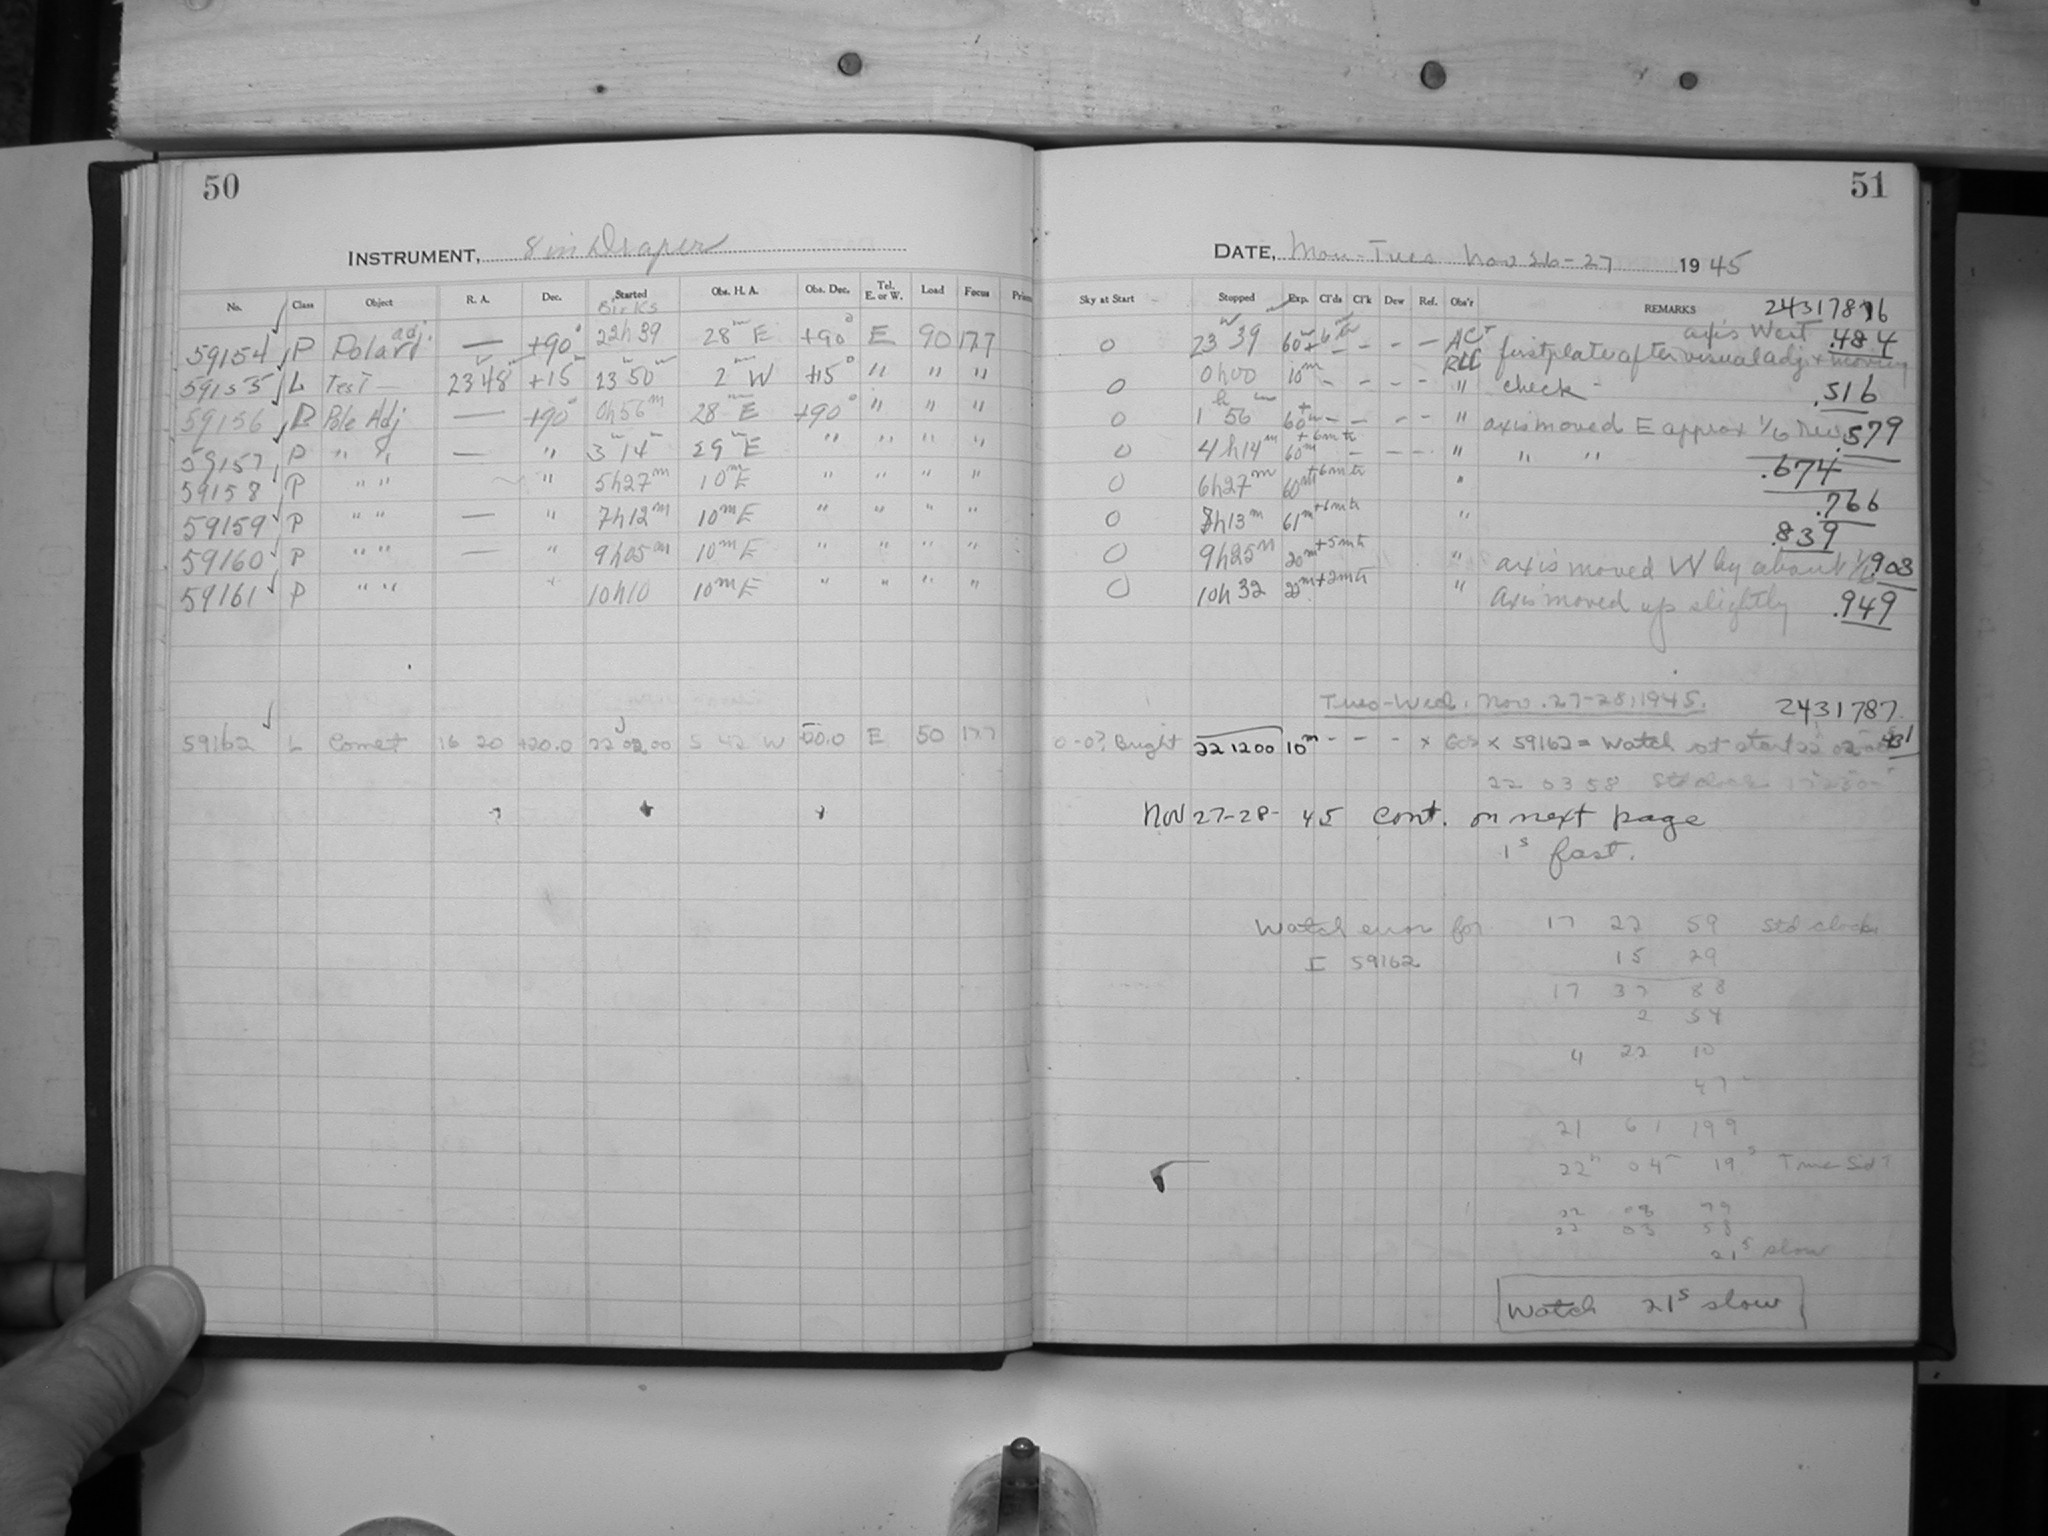 50
INSTRUMENT, 8 in Draper
No. Class Object R. A. Dec. Started Obs. H. A. Obs. Dec. Tel. E. or W. Load Focus
59154 P Polar adj. — +90° 22h 39 28m E +90° E 90 177
59155 L Test — 23 48 +15° 23 50 2m W +15° " " "
59156 P Pole Adj — +90° 0h56m 28m E +90° " " "
59157 P " " — " 3 14 29m E " " " "
59158 P " " " 5h27m 10m E " " " "
59159 P " " — " 7h12m 10m E " " " "
59160 P " " — " 9h05m 10m E " " " "
59161 P " " " 10h10 10m E " " " "
59162 L Comet 16 20 +20.0 22 02 00 5 42 W +20.0 E 50 177
51
DATE, Mon-Tues Nov 26-27 1945
Sky at Start Stopped Exp. Cl'ds Cl'k Dew Ref. Obs'r REMARKS 2431786
axis West .484
0 23 39 60m + 6m tr – – – – ACT RLC first plate after visual adj + moving
0 0h00 10m – – – – " check – .516
0 1h 56m 60m + – – – – " axis moved E approx 1/6 rev .579
0 4h14m 60m +6m tr – – – " " " .674
0 6h27m 60m +6m tr " .766
0 8h13m 61m +6m tr " .839
0 9h25m 20m +5m tr " axis moved W by about 1/6 .903
0 10h 32 22m +2m tr " Axis moved up slightly .949
Tues-Wed. Nov. 27-28, 1945. 2431787
0-0? Bright 22 12 00 10m – – – × × 59162 = Watch at start 22 02 00 .431
22 03 58 Std clock 17
Nov 27-28-45 cont. on next page
1s fast.
Watch error for 17 22 59 Std clock
I 59162 15 29
17 37 88
2 54
4 22 10
47
21 61 199
22h 04m 19s True Sid T
22 03 79
22 03 58
21s slow
Watch 21s slow